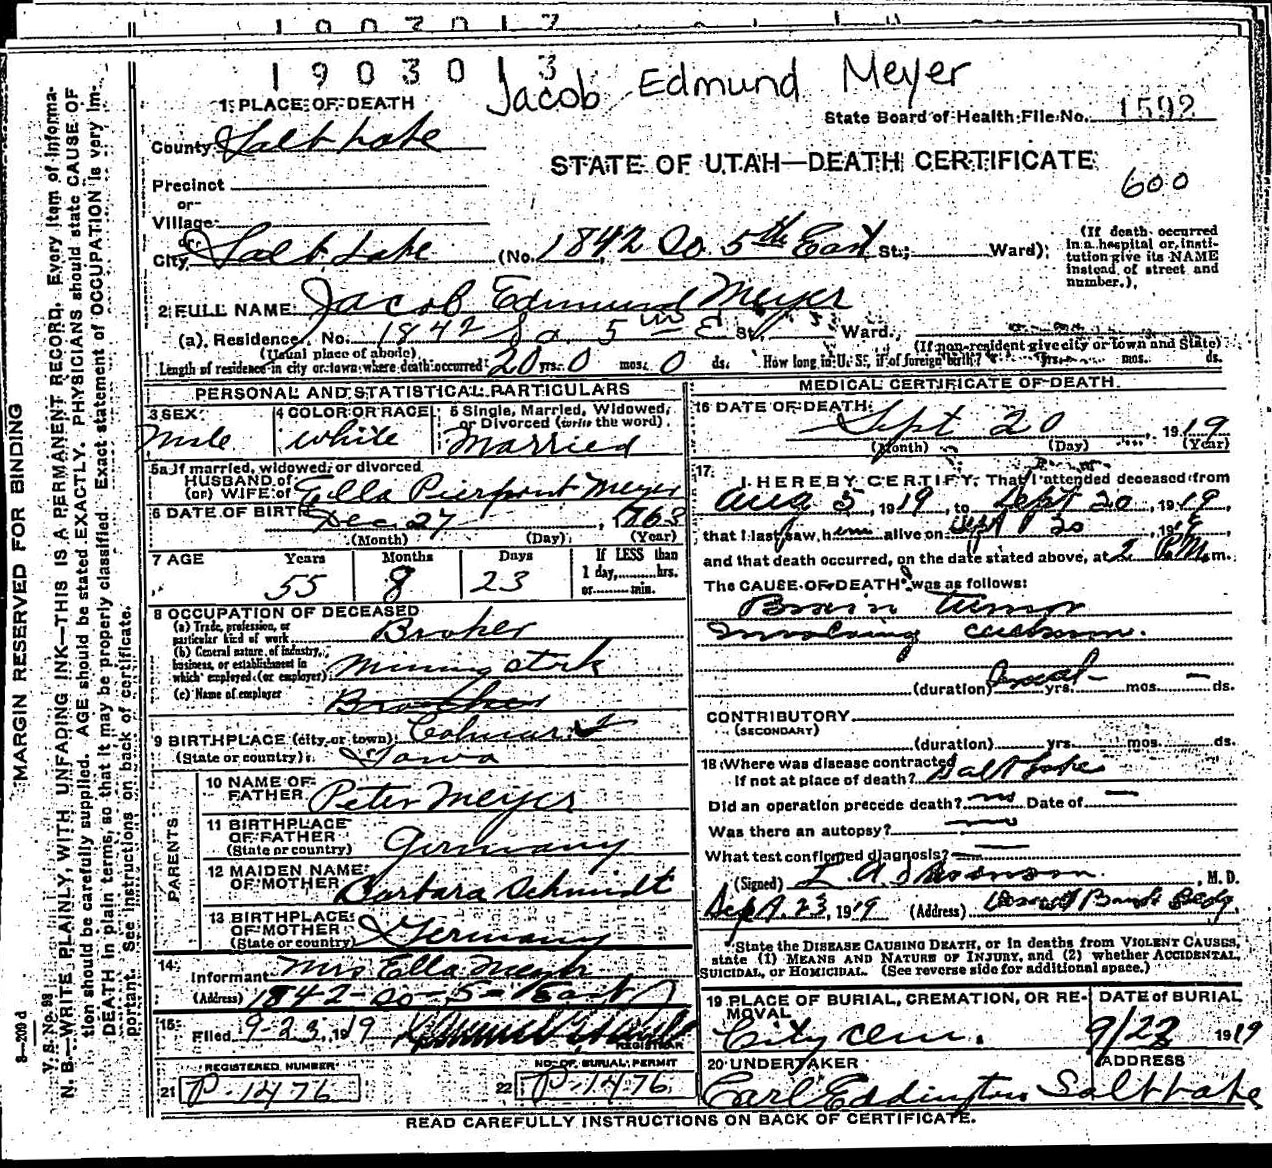 1903013
Jacob Edmund Meyer
State Board of Health File No. 1592
STATE OF UTAH—DEATH CERTIFICATE
600
1 PLACE OF DEATH
County Salt Lake
Precinct
or
Village
or
City Salt Lake (No. 1842 So. 5th East St.; Ward)
(If death occurred in a hospital or institution give its NAME instead of street and number.)
2 FULL NAME Jacob Edmund Meyer
(a) Residence. No. 1842 So. 5th E St. Ward.
(Usual place of abode) (If non-resident give city or town and State)
Length of residence in city or town where death occurred 20 yrs. 0 mos. 0 ds. How long in U. S., if of foreign birth? yrs. mos. ds.
PERSONAL AND STATISTICAL PARTICULARS
3 SEX Male
4 COLOR OR RACE White
5 Single, Married, Widowed, or Divorced (write the word) Married
5a If married, widowed, or divorced
HUSBAND of
(or) WIFE of Ella Pierpont Meyer
6 DATE OF BIRTH Dec. 27, 1863
(Month) (Day) (Year)
7 AGE Years 55 Months 8 Days 23 If LESS than 1 day, hrs. or min.
8 OCCUPATION OF DECEASED
(a) Trade, profession, or particular kind of work Broker
(b) General nature of industry, business, or establishment in which employed (or employer) Mining Stock
(c) Name of employer
9 BIRTHPLACE (city or town)
(State or country) Iowa
PARENTS
10 NAME OF FATHER Peter Meyer
11 BIRTHPLACE OF FATHER (State or country) Germany
12 MAIDEN NAME OF MOTHER Barbara Schmidt
13 BIRTHPLACE OF MOTHER (State or country) Germany
14 Informant Mrs Ella Meyer
(Address) 1842 - So - 5 - East
15 Filed 9-23, 1919
REGISTRAR
REGISTERED NUMBER
21 P-1476
NO. OF BURIAL PERMIT
22 P-1476
MEDICAL CERTIFICATE OF DEATH
16 DATE OF DEATH Sept 20, 1919
(Month) (Day) (Year)
17 I HEREBY CERTIFY, That I attended deceased from
Aug 5, 1919, to Sept 20, 1919,
that I last saw him alive on Sept 20, 1919
and that death occurred, on the date stated above, at 2 P.M. m.
The CAUSE OF DEATH was as follows:
Brain Tumor
involving
(duration) yrs. mos. ds.
CONTRIBUTORY
(SECONDARY)
(duration) yrs. mos. ds.
18 Where was disease contracted
If not at place of death? Salt Lake
Did an operation precede death? no Date of —
Was there an autopsy? no
What test confirmed diagnosis? —
(Signed) , M. D.
Sept. 23, 1919 (Address) Bank Bldg.
State the DISEASE CAUSING DEATH, or in deaths from VIOLENT CAUSES, state (1) MEANS AND NATURE OF INJURY, and (2) whether ACCIDENTAL, SUICIDAL, or HOMICIDAL. (See reverse side for additional space.)
19 PLACE OF BURIAL, CREMATION, OR REMOVAL City Cem.
DATE OF BURIAL 9/23 1919
20 UNDERTAKER Carl Eddington
ADDRESS Salt Lake
READ CAREFULLY INSTRUCTIONS ON BACK OF CERTIFICATE.
MARGIN RESERVED FOR BINDING
V. S. No. 98
N. B.—WRITE PLAINLY, WITH UNFADING INK—THIS IS A PERMANENT RECORD. Every item of information should be carefully supplied. AGE should be stated EXACTLY. PHYSICIANS should state CAUSE OF DEATH in plain terms, so that it may be properly classified. Exact statement of OCCUPATION is very important. See instructions on back of certificate.